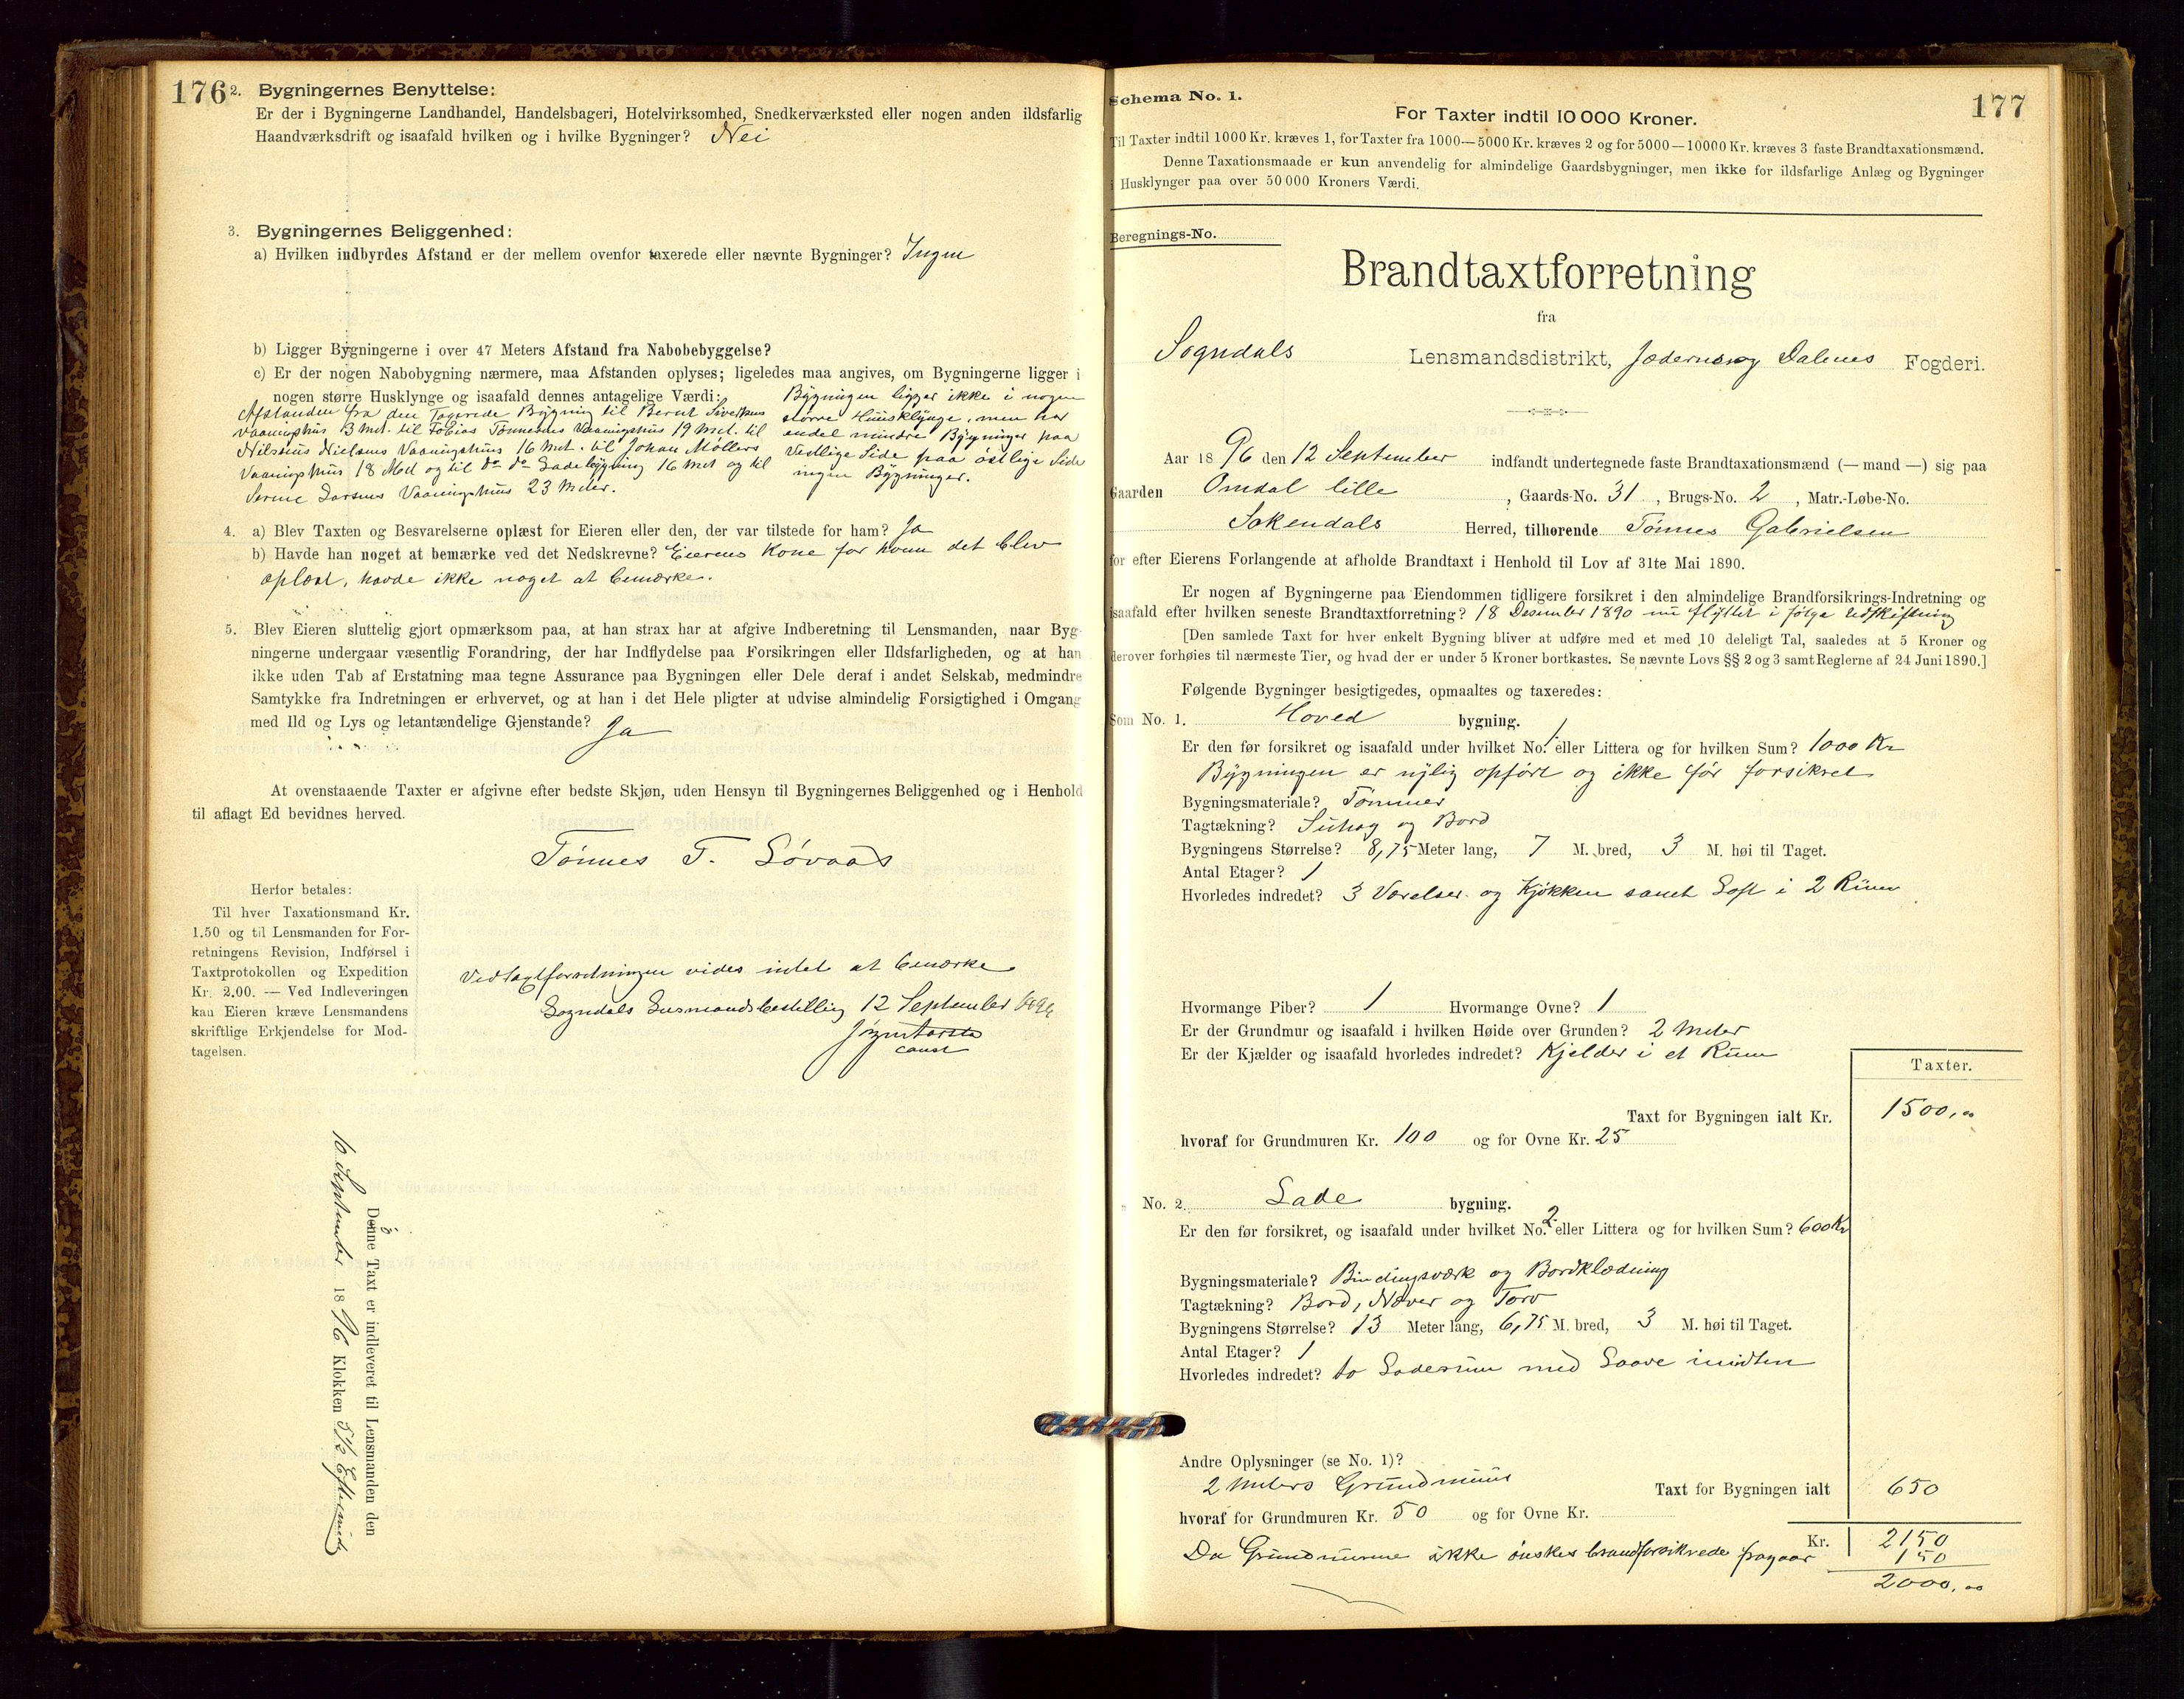 176
2. Bygningernes Benyttelse:
Er der i Bygningerne Landhandel, Handelsbageri, Hotelvirksomhed, Snedkerværksted eller nogen anden ildsfarlig
Haandværksdrift og isaafald hvilken og i hvilke Bygninger? Nei
3. Bygningernes Beliggenhed:
a) Hvilken indbyrdes Afstand er der mellem ovenfor taxerede eller nævnte Bygninger? Ingen
b) Ligger Bygningerne i over 47 Meters Afstand fra Nabobebyggelse?
c) Er der nogen Nabobygning nærmere, maa Afstanden oplyses; ligeledes maa angives, om Bygningerne ligger i
nogen større Husklynge og isaafald dennes antagelige Værdi:
Afstanden fra den Taxerede Bygning til Bernt
Vaaningshus 13 Met. til Tobias Tønnesens Vaaningshus 19 Met. til
Nilsenius Nielsens Vaaningshus 16 Met. til Johan Møllers
Vaaningshus 18 Met og til do do Ladebygning 16 Met og til
Larsens Vaaningshus 23 Meter.
Bygningen ligger ikke i nogen
større Huusklynge, men har
endel mindre Bygninger paa
Vestlige Side paa østlige Side
ingen Bygninger.
4. a) Blev Taxten og Besvarelserne oplæst for Eieren eller den, der var tilstede for ham? Ja
b) Havde han noget at bemærke ved det Nedskrevne? Eierens Kone for hvem det blev
oplæst, havde ikke noget at bemærke.
5. Blev Eieren sluttelig gjort opmærksom paa, at han strax har at afgive Indberetning til Lensmanden, naar Byg-
ningerne undergaar væsentlig Forandring, der har Indflydelse paa Forsikringen eller Ildsfarligheden, og at han
ikke uden Tab af Erstatning maa tegne Assurance paa Bygningen eller Dele deraf i andet Selskab, medmindre
Samtykke fra Indretningen er erhvervet, og at han i det Hele pligter at udvise almindelig Forsigtighed i Omgang
med Ild og Lys og letantændelige Gjenstande? Ja
At ovenstaaende Taxter er afgivne efter bedste Skjøn, uden Hensyn til Bygningernes Beliggenhed og i Henhold
til aflagt Ed bevidnes herved.
Tønnes T. Løvaas
Herfor betales:
Til hver Taxationsmand Kr.
1.50 og til Lensmanden for For-
retningens Revision, Indførsel i
Taxtprotokollen og Expedition
Kr. 2.00. — Ved Indleveringen
kan Eieren kræve Lensmandens
skriftlige Erkjendelse for Mod-
tagelsen.
Ved Taxtforretningen vides intet at bemærke
Sogndals Lensmandsbestilling 12 September 1896
const
Denne Taxt er indleveret til Lensmanden den
September 1896 Klokken 5½ Eftermiddag
Schema No. 1.
177
For Taxter indtil 10 000 Kroner.
Til Taxter indtil 1000 Kr. kræves 1, for Taxter fra 1000—5000 Kr. kræves 2 og for 5000—10000 Kr. kræves 3 faste Brandtaxationsmænd.
Denne Taxationsmaade er kun anvendelig for almindelige Gaardsbygninger, men ikke for ildsfarlige Anlæg og Bygninger
i Husklynger paa over 50 000 Kroners Værdi.
Beregnings-No.
Brandtaxtforretning
fra
Sogndals Lensmandsdistrikt, Jæderens og Dalenes Fogderi.
Aar 1896 den 12 September indfandt undertegnede faste Brandtaxationsmænd (— mand —) sig paa
Gaarden Omdal lille, Gaards-No. 31, Brugs-No. 2, Matr.-Løbe-No.
Sokendals Herred, tilhørende Tønnes Gabrielsen
for efter Eierens Forlangende at afholde Brandtaxt i Henhold til Lov af 31te Mai 1890.
Er nogen af Bygningerne paa Eiendommen tidligere forsikret i den almindelige Brandforsikrings-Indretning og
isaafald efter hvilken seneste Brandtaxtforretning? 18 Desember 1890 nu flyttet i følge Udskiftning
[Den samlede Taxt for hver enkelt Bygning bliver at udføre med et med 10 deleligt Tal, saaledes at 5 Kroner og
derover forhøies til nærmeste Tier, og hvad der er under 5 Kroner bortkastes. Se nævnte Lovs §§ 2 og 3 samt Reglerne af 24 Juni 1890.]
Følgende Bygninger besigtigedes, opmaaltes og taxeredes:
Som No. 1. Hoved bygning.
Er den før forsikret og isaafald under hvilket No. 1 eller Littera og for hvilken Sum? 1000 Kr
Bygningen er nylig opført og ikke før forsikret
Bygningsmateriale? Tømmer
Tagtækning? og Bord
Bygningens Størrelse? 8,75 Meter lang, 7 M. bred, 3 M. høi til Taget.
Antal Etager? 1
Hvorledes indredet? 3 Værelser og Kjøkken samt Loft i 2 Rum
Hvormange Piber? 1 Hvormange Ovne? 1
Er der Grundmur og isaafald i hvilken Høide over Grunden? 2 Meter
Er der Kjælder og isaafald hvorledes indredet? Kjelder i et Rum
Taxter.
Taxt for Bygningen ialt Kr. 1500,00
hvoraf for Grundmuren Kr. 100 og for Ovne Kr. 25
No. 2. Lade bygning.
Er den før forsikret, og isaafald under hvilket No. 2 eller Littera og for hvilken Sum? 600 Kr
Bygningsmateriale? Bindingsværk og Bordklædning
Tagtækning? Bord, Næver og Torv
Bygningens Størrelse? 13 Meter lang, 6,75 M. bred, 3 M. høi til Taget.
Antal Etager? 1
Hvorledes indredet? to Laderum med Laave imidten
Andre Oplysninger (se No. 1)?
2 Meters Grundmuur Taxt for Bygningen ialt 650
hvoraf for Grundmuren Kr. 50 og for Ovne Kr.
Kr. 2150
Da Grundmurene ikke ønskes brandforsikrede fragaar 150
2000,00